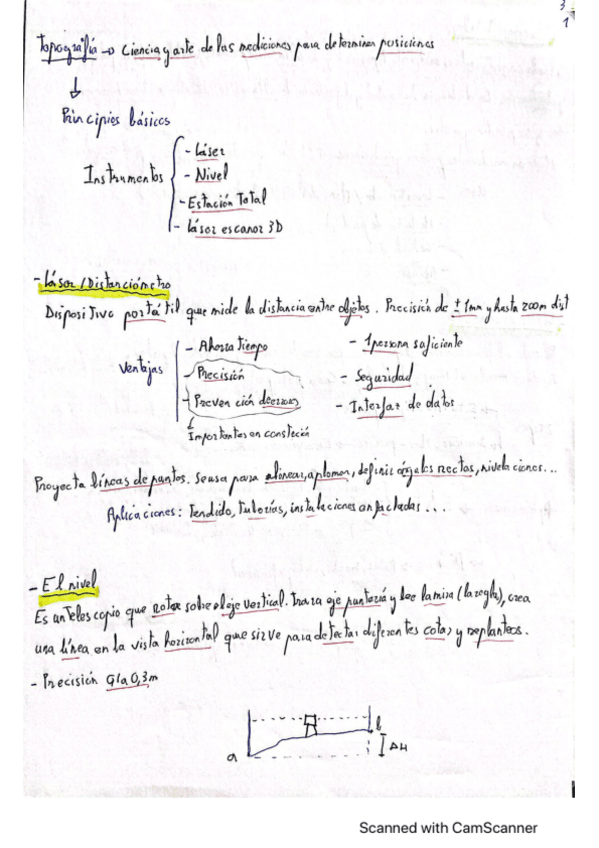 3
1
Topografía → Ciencia y arte de las mediciones para determinar posiciones
↓
Principios básicos
Instrumentos
- Láser
- Nivel
- Estación Total
- láser escaner 3D
- Láser / Distanciómetro
Dispositivo portátil que mide la distancia entre objetos. Precisión de ± 1mm y hasta 200m dist
Ventajas
- Ahorra tiempo
- Precisión
- Prevención de errores
- 1 persona suficiente
- Seguridad
- Interfaz de datos
↓
Importantes en constcción
Proyecta líneas de puntos. Se usa para alinear, aplomar, definir ángulos rectos, nivelaciones...
Aplicaciones: Tendido, tuberías, instalaciones en fachadas ...
- El nivel
Es un telescopio que rota sobre el eje vertical. Traza eje puntería y lee la mira (la regla), crea
una línea en la vista horizontal que sirve para detectar diferentes cotas y replanteos.
- Precisión 0,1 a 0,3m
a
b
ΔH
Scanned with CamScanner